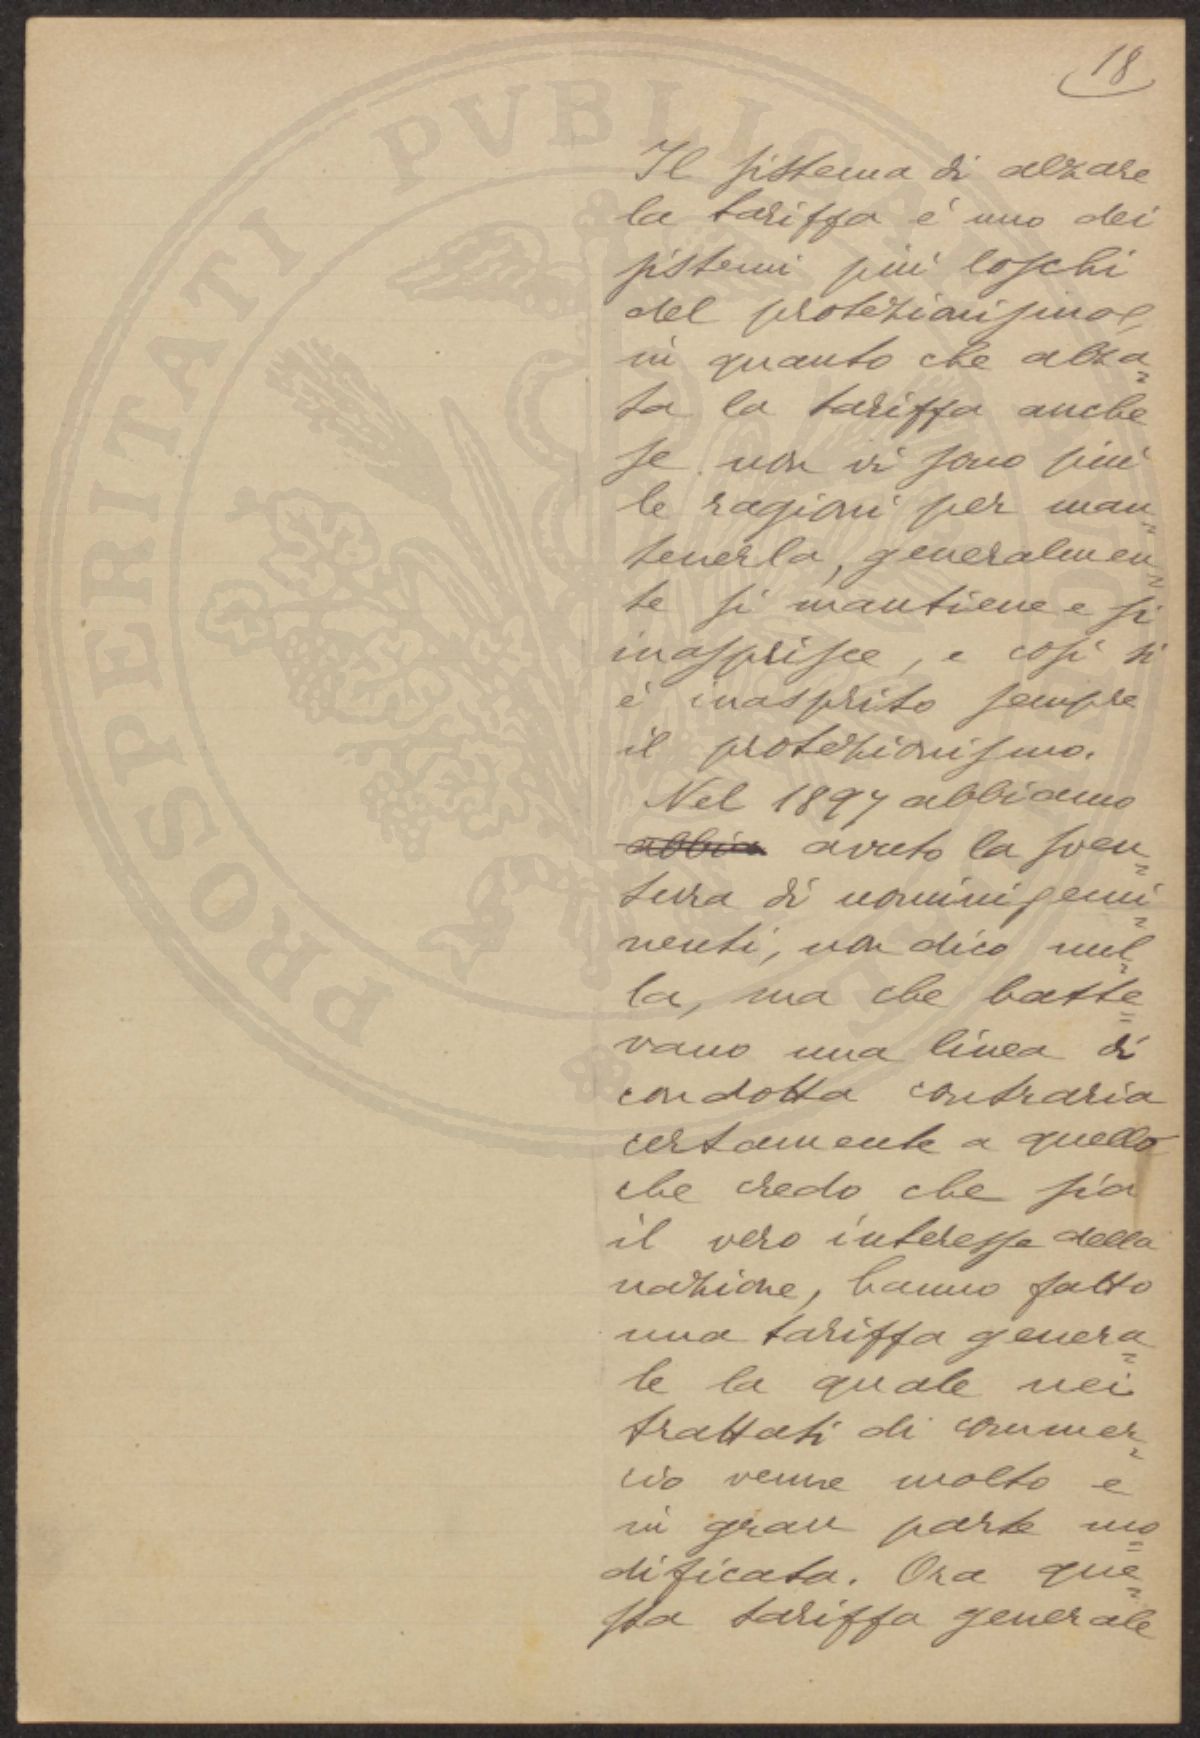 18
Il sistema di alzare
la tariffa é uno dei
sistemi piú loschi
del protezionismo,
in quanto che alza=
ta la tariffa anche
se non vi sono piú
le ragioni per man=
tenerla, generalmen=
te si mantiene e si
inasprisce, e cosí si
é inasprito sempre
il protezionismo.
Nel 1897 abbiamo
abbia avuto la sven=
tura di uomini emi=
nenti, non dico nul=
la, ma che batte=
vano una linea di
condotta contraria
certamente a quello
che credo che sia
il vero interesse della
nazione, hanno fatto
una tariffa genera=
le la quale nei
trattati di commer=
cio venne molto e
in gran parte mo=
dificata. Ora que=
sta tariffa generale
PROSPERITATI PVBLICAE